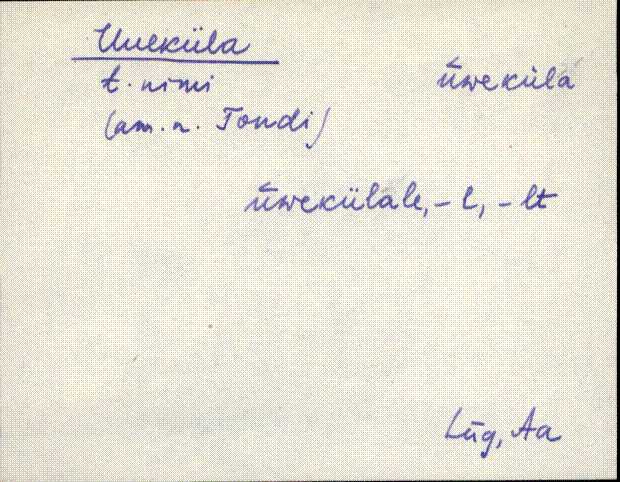 Uueküla
t. nimi
ūweküla
(am. n. Tondi)
ūwekülale, -l, -lt
Lüg, Aa